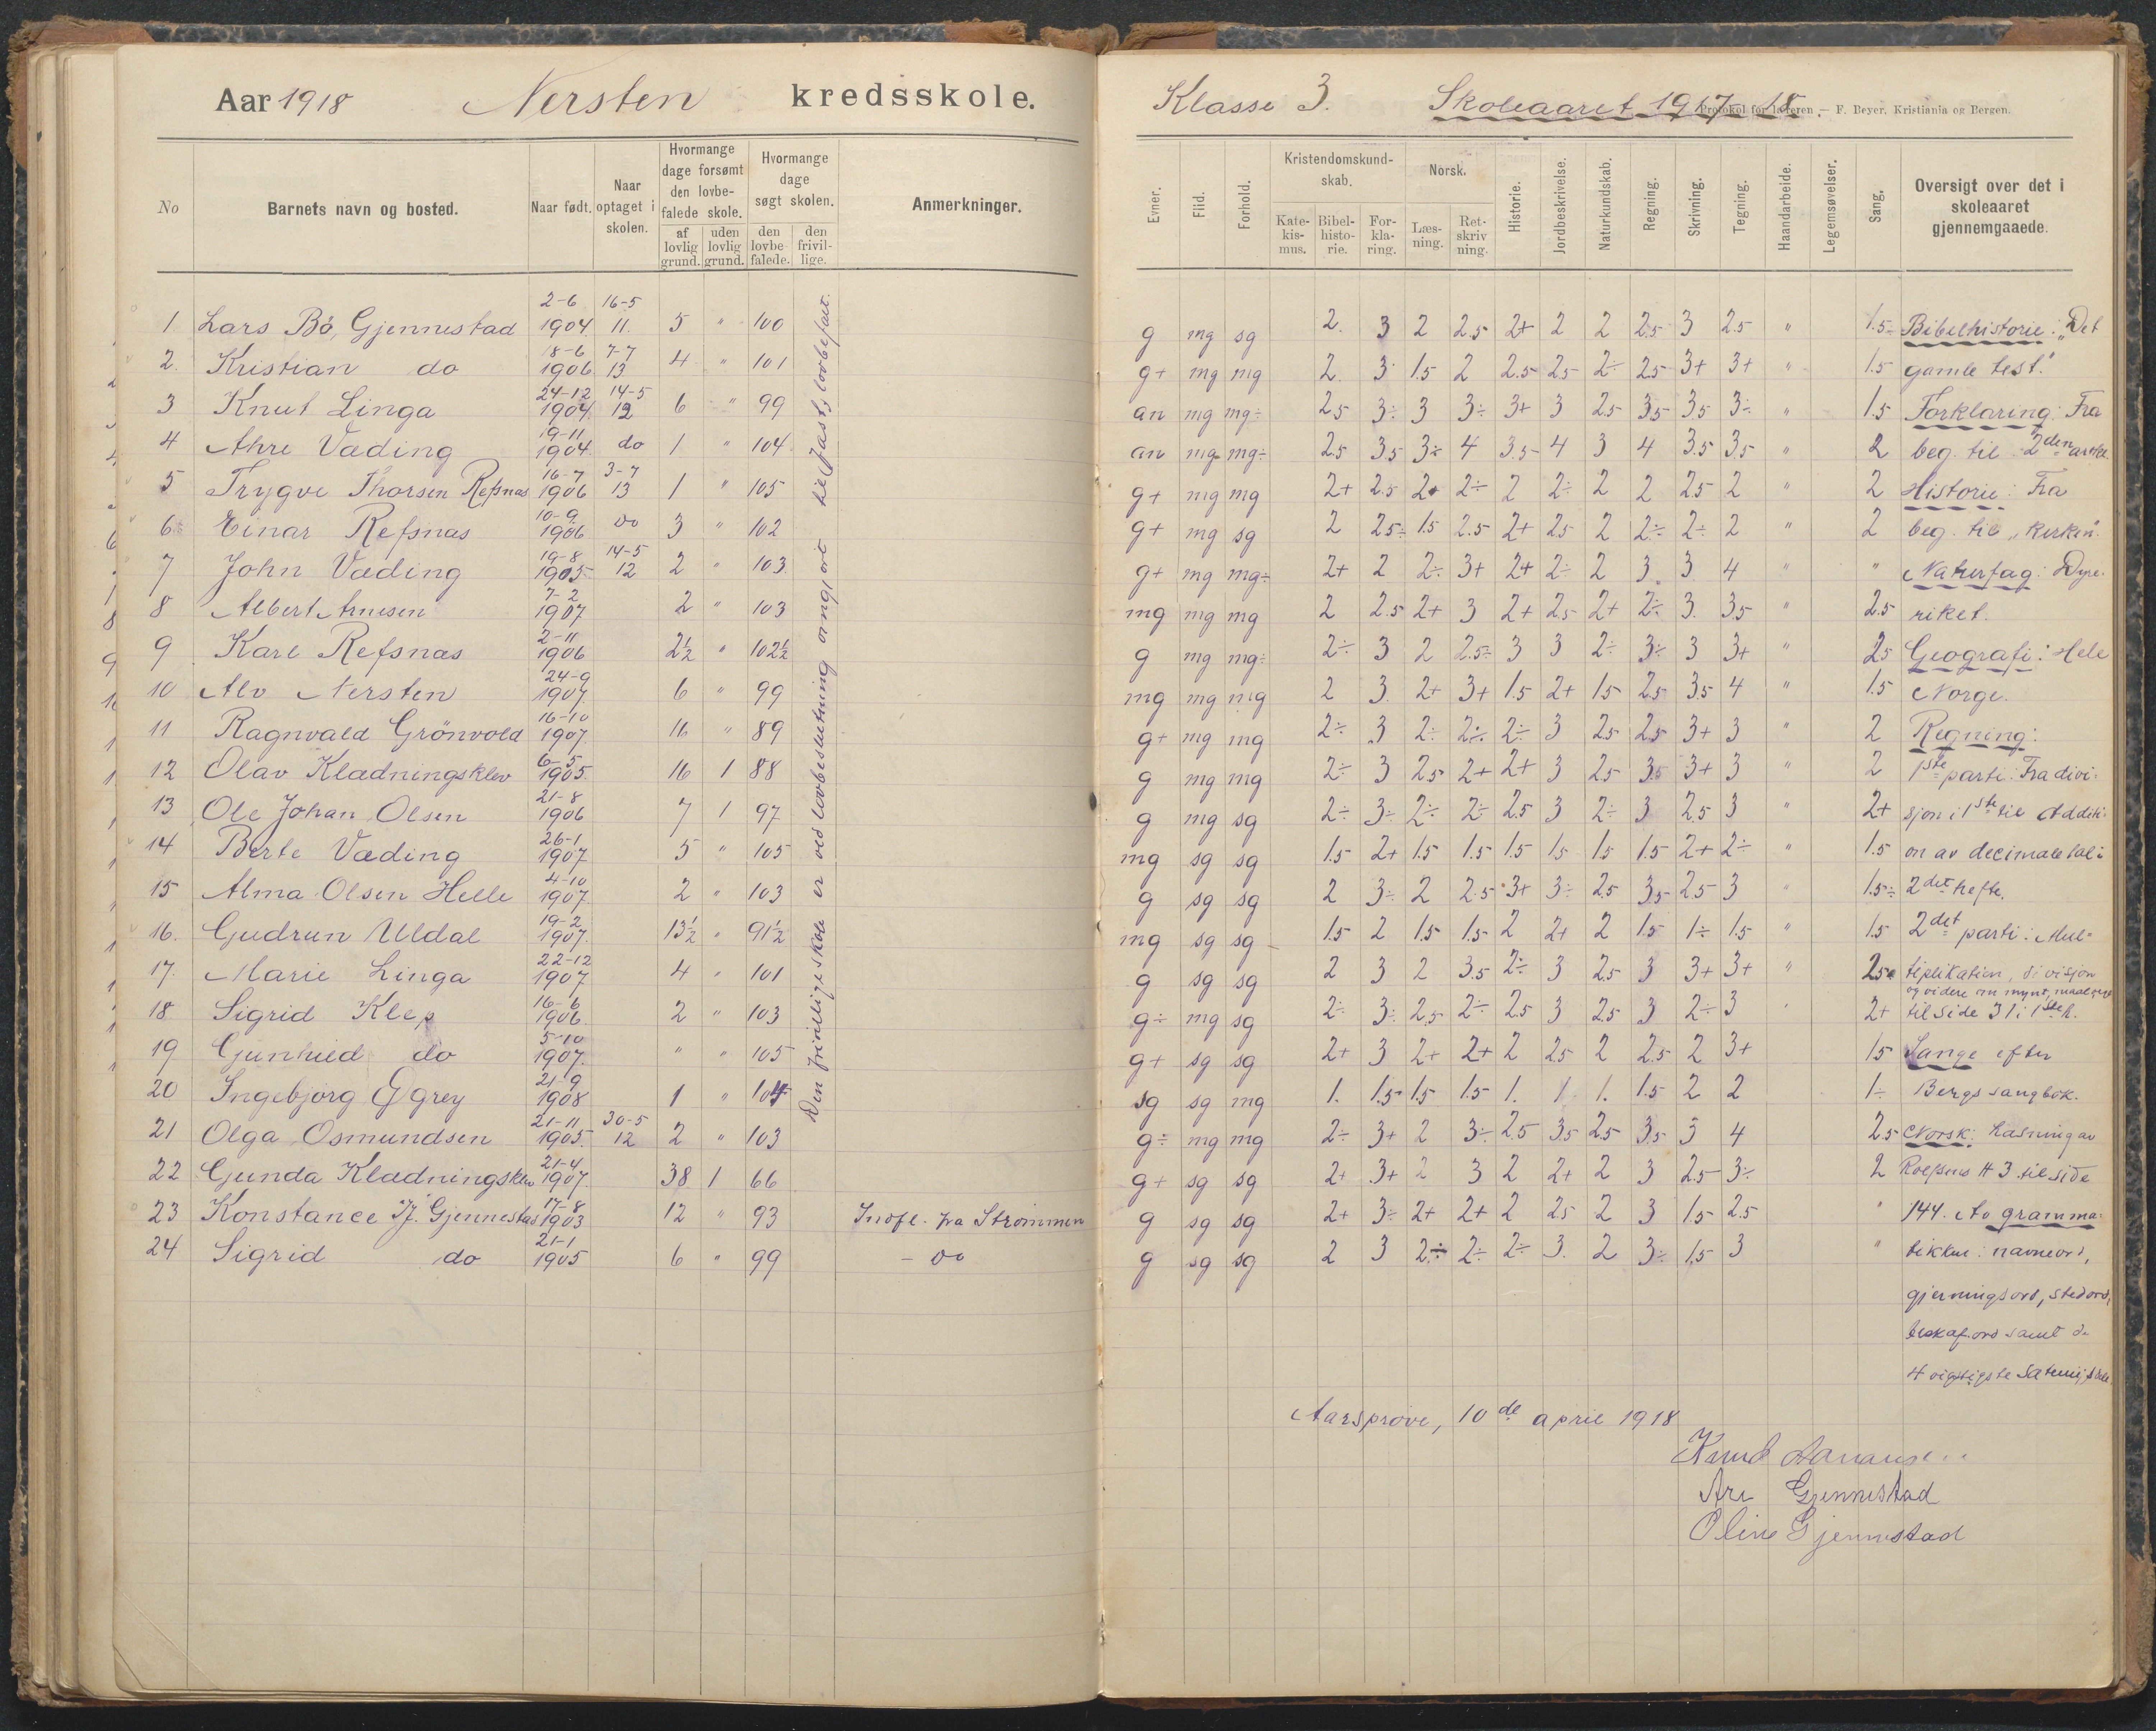 Aar 1918 Nersten kredsskole.
No
Barnets navn og bosted.
Naar født.
Naar optaget i skolen.
Hvormange dage forsømt den lovbefalede skole.
af lovlig grund.
uden lovlig grund.
Hvormange dage søgt skolen.
den lovbefalede.
den frivillige.
Anmerkninger.
1 Lars Bö, Gjennestad 2-6 1904 16-5 11. 5 " 100
2. Kristian do 18-6 1906 7-7 13 4 " 101
3 Knut Linga 24-12 1904 14-5 12 6 " 99
4 Ahre Væding 19-11 1904 do 1 " 104
5 Trygve Thorsen Refsnæs 16-7 1906 3-7 13 1 " 105
6 Einar Refsnæs 10-9 1906 do 3 " 102
7 John Væding 19-8 1905 14-5 12 2 " 103
8 Albert Arnesen 7-2 1907 2 " 103
9 Karl Refsnæs 2-11 1906 2½ " 102½
10 Alv Nersten 24-9 1907 6 " 99
11 Ragnvald Grönvold 16-10 1907 16 " 89
12 Olav Klædningsklev 6-5 1905 16 1 88
13 Ole Johan Olsen 21-8 1906 7 1 97
14 Berte Væding 26-1 1907 5 " 105
15 Alma Olsen Helle 4-10 1907 2 " 103
16. Gudrun Uldal 19-2 1907 13½ " 91½
17. Marie Linga 22-12 1907 4 " 101
18 Sigrid Klep 16-6 1906 2 " 103
19 Gunhild do 5-10 1907 " " 105
20 Ingebjörg Ggrey 21-9 1908 1 " 104
21 Olga Osmundsen 21-11 1905 30-5 12 2 " 103
22 Gunda Klædningsklev 21-4 1907 38 1 66
23 Konstance Gjennestad 17-8 1903 12 " 93 Indfl. fra Strömmen
24 Sigrid do 21-1 1905 6 " 99 - do
Den frivillige skole er ved lovbeslutning omgjort til fast, lovbefalt.
Klasse 3. Skoleaaret 1917-18.
Protokol for læreren. — F. Beyer. Kristiania og Bergen.
Evner.
Flid.
Forhold.
Kristendomskundskab.
Katekismus.
Bibelhistorie.
Forklaring.
Norsk.
Læsning.
Retskrivning.
Historie.
Jordbeskrivelse.
Naturkundskab.
Regning.
Skrivning.
Tegning.
Haandarbeide.
Legemsøvelser.
Sang.
Oversigt over det i skoleaaret gjennemgaaede.
g mg sg 2. 3 2 2.5 2+ 2 2 2.5 3 2.5 " 1.5÷ Bibelhistorie: "Det
g+ mg mg 2. 3 1.5 2 2.5 2.5 2÷ 2.5 3+ 3+ " 1.5 gamle test."
an mg mg÷ 2.5 3÷ 3 3÷ 3+ 3 2.5 3.5 3.5 3÷ " 1.5 Forklaring: Fra
an mg mg÷ 2.5 3.5 3÷ 4 3.5 4 3 4 3.5 3.5 " 2 beg. til 2den artkl.
g+ mg mg 2+ 2.5 2+ 2÷ 2 2÷ 2 2 2.5 2 " 2 Historie: Fra
g+ mg sg 2 2.5÷ 1.5 2.5 2+ 2.5 2 2÷ 2÷ 2 " 2 beg. til "Kirken".
g+ mg mg÷ 2+ 2 2÷ 3+ 2+ 2÷ 2 3 3 4 " " Naturfag: Dyre-
mg mg mg 2 2.5 2+ 3 2+ 2.5 2+ 2÷ 3. 3.5 " 2.5 riket.
g mg mg÷ 2÷ 3 2 2.5÷ 3 3 2÷ 3÷ 3 3+ " 2.5 Geografi: Hele
mg mg mg 2 3. 2+ 3+ 1.5 2+ 1.5 2.5 3.5 4 " 1.5 Norge.
g+ mg mg 2÷ 3 2÷ 2÷ 2÷ 3 2.5 2.5 3+ 3 " 2 Regning:
g mg mg 2÷ 3 2.5 2+ 2+ 3 2.5 3.5 3+ 3 " 2 1ste parti: Fra divi-
g mg sg 2÷ 3÷ 2÷ 2÷ 2.5 3 2÷ 3 2.5 3 " 2+ sjon i 1ste til Addisi-
mg sg sg 1.5 2+ 1.5 1.5 1.5 1.5 1.5 1.5 2+ 2÷ " 1.5 on av decimaltal i
g sg sg 2 3÷ 2 2.5 3+ 3÷ 2.5 3.5 2.5 3 " 1.5÷ 2det hefte.
mg sg sg 1.5 2 1.5 1.5 2 2+ 2 1.5 1÷ 1.5 " 1.5 2det parti: Mul-
g sg sg 2 3 2 3.5 2÷ 3 2.5 3 3+ 3+ " 2.5 tiplikation, divisjon
og videre om mynt, maal og
g÷ mg sg 2÷ 3÷ 2.5 2÷ 2.5 3 2.5 3 2÷ 3 " 2+ til side 31 i 1ste h.
g+ sg sg 2+ 3 2+ 2+ 2 2.5 2 2.5 2 3+ 1.5 Sange efter
sg sg mg 1. 1.5 1.5 1.5 1. 1 1. 1.5 2 2 1÷ Bergs sangbok.
g÷ mg mg 2÷ 3+ 2 3÷ 2.5 3.5 2.5 3.5 3 4 2.5 Norsk: Læsning av
g+ sg sg 2+ 3+ 2 3 2 2+ 2 3 2.5 3÷ 2 Rolfsens # 3 til side
g sg sg 2+ 3÷ 2+ 2+ 2 2.5 2 3 1.5 2.5 " 144. Av gramma-
g sg sg 2 3 2÷ 2÷ 2÷ 3. 2 3÷ 1.5 3 " tikken: navneord,
gjerningsord, stedord,
beskaf.ord samt de
4 vigtigste
Aarsprøve, 10de april 1918
Knud
Are Gjennestad
Oline Gjennestad